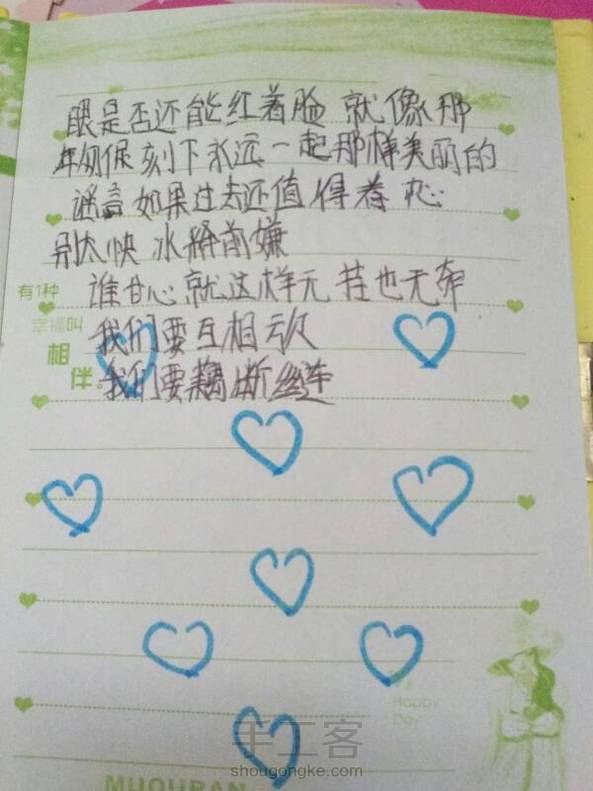 眼是否还能红着脸 就像那
年匆促 刻下永远一起那样美丽的
谣言 如果过去还值得眷恋
别太快 冰释前嫌
谁甘心 就这样无 挂也无牵
我们要互相亏欠
我们要藕断丝连
有1种
幸福叫
相
伴。
Happy
Day
手工客
shougongke.com